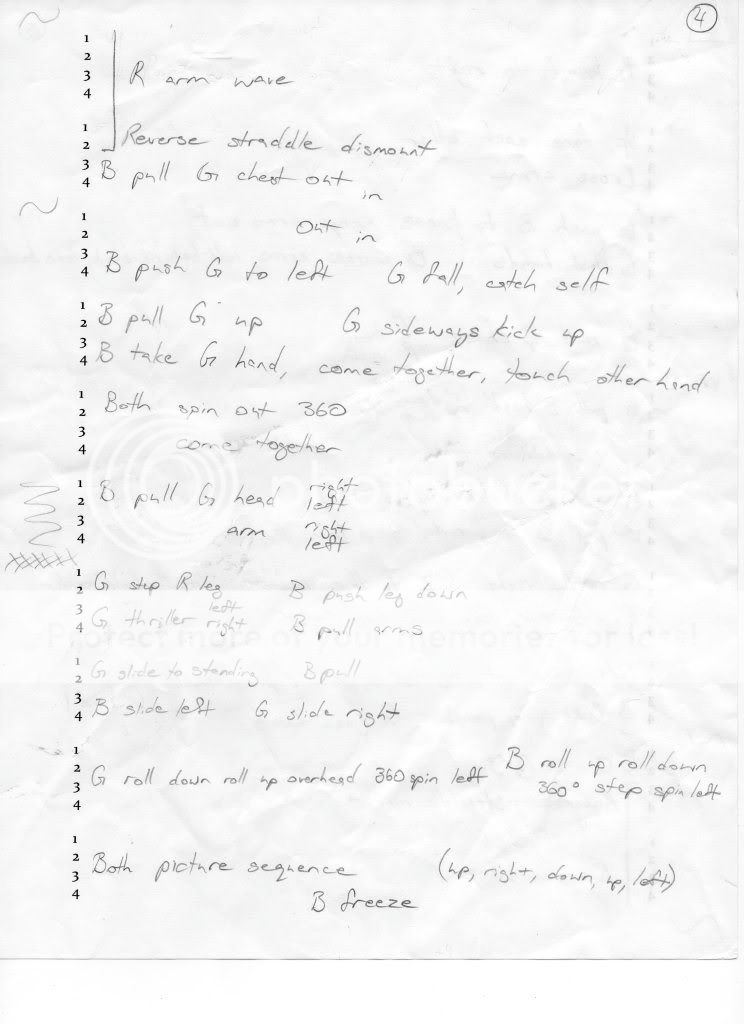 4
1
2
3 R arm wave
4
1
2 Reverse straddle dismount
3 B pull G chest out
4 in
1 out
2 in
3
4 B push G to left G fall, catch self
1 B pull G up
2 G sideways kick up
3
4 B take G hand, come together, touch other hand
1 Both spin out 360
2
3
4 come together
1 B pull G head right
2 left
3 arm right
4 left
1 G step R leg
2 B push leg down
3 G thriller left
4 right B pull arms
1
2 G slide to standing B pull
3
4 B slide left G slide right
1 B roll up roll down
2 G roll down roll up overhead 360 spin left
3 360° step spin left
4
1
2 Both picture sequence (up, right, down, up, left)
3
4 B freeze
Protect more of your memories for less!